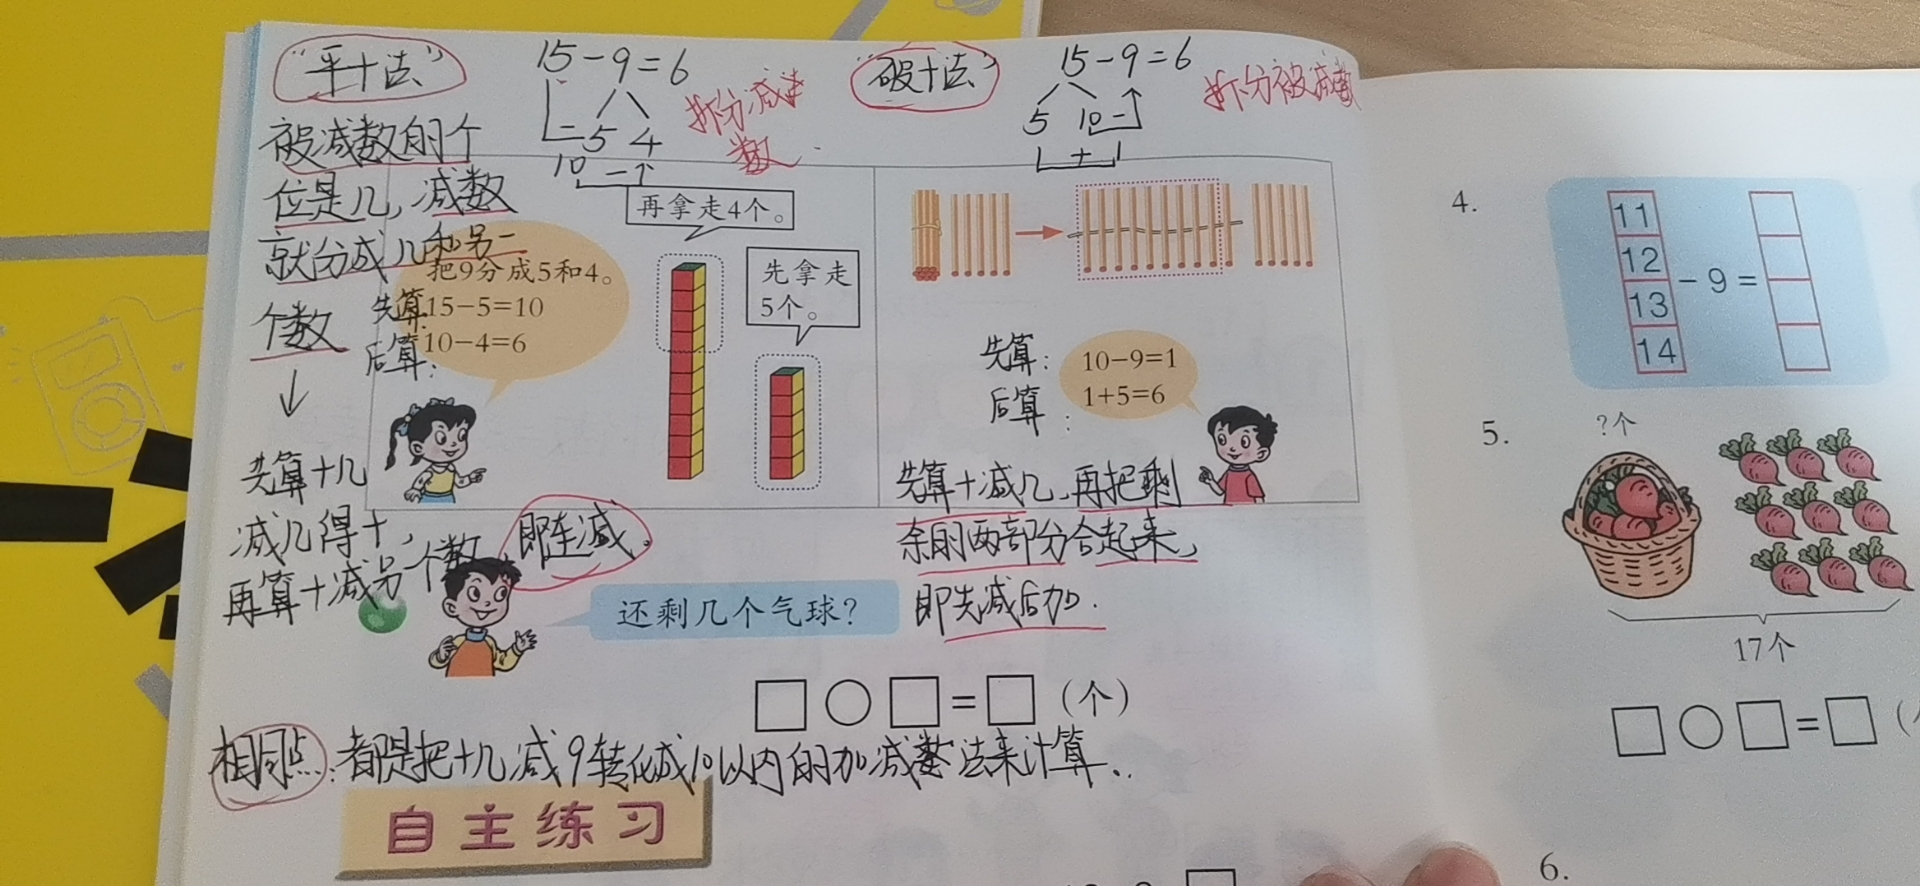 “平十法”
15-9=6
5 4
10
拆分减
数
被减数的个
位是几,减数
就分成几和另一
个数
↓
先算十几
减几得十,
再算十减另个数
即连减。
再拿走4个。
把9分成5和4。
先算:15-5=10
后算:10-4=6
先拿走
5个。
“破十法”
15-9=6
5 10
拆分被减数
先算:10-9=1
后算:1+5=6
先算十减几,再把剩
余的两部分合起来,
即先减后加.
还剩几个气球?
□○□=□(个)
相同点:都是把十几减9转化成10以内的加减法来计算.
自主练习
4.
11
12
13
14
-9=
5.
?个
17个
□○□=□(
6.